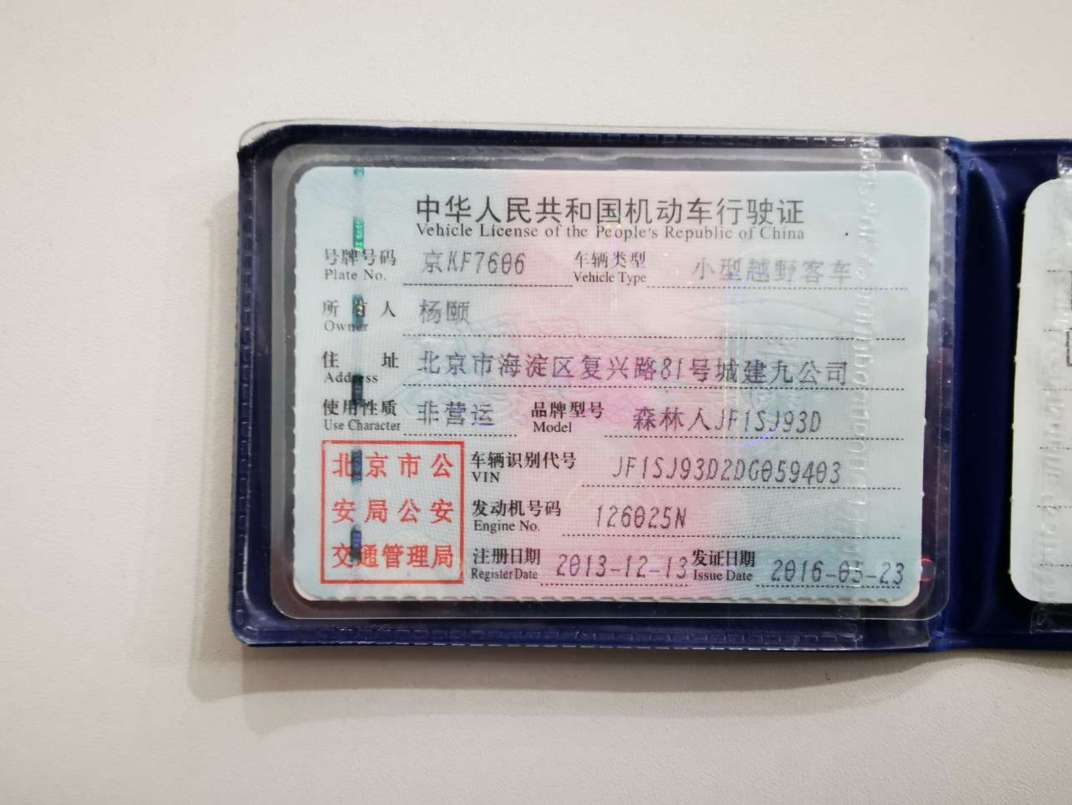 中华人民共和国机动车行驶证
Vehicle License of the People's Republic of China
号牌号码 京KF7606 车辆类型 小型越野客车
Plate No. Vehicle Type
所有人 杨颐
Owner
住址 北京市海淀区复兴路81号城建九公司
Address
使用性质 非营运 品牌型号 森林人JF1SJ93D
Use Character Model
北京市公
安局公安
交通管理局
车辆识别代号 JF1SJ93D2DG059403
VIN
发动机号码 126025N
Engine No.
注册日期 2013-12-13 发证日期 2016-05-23
Register Date Issue Date